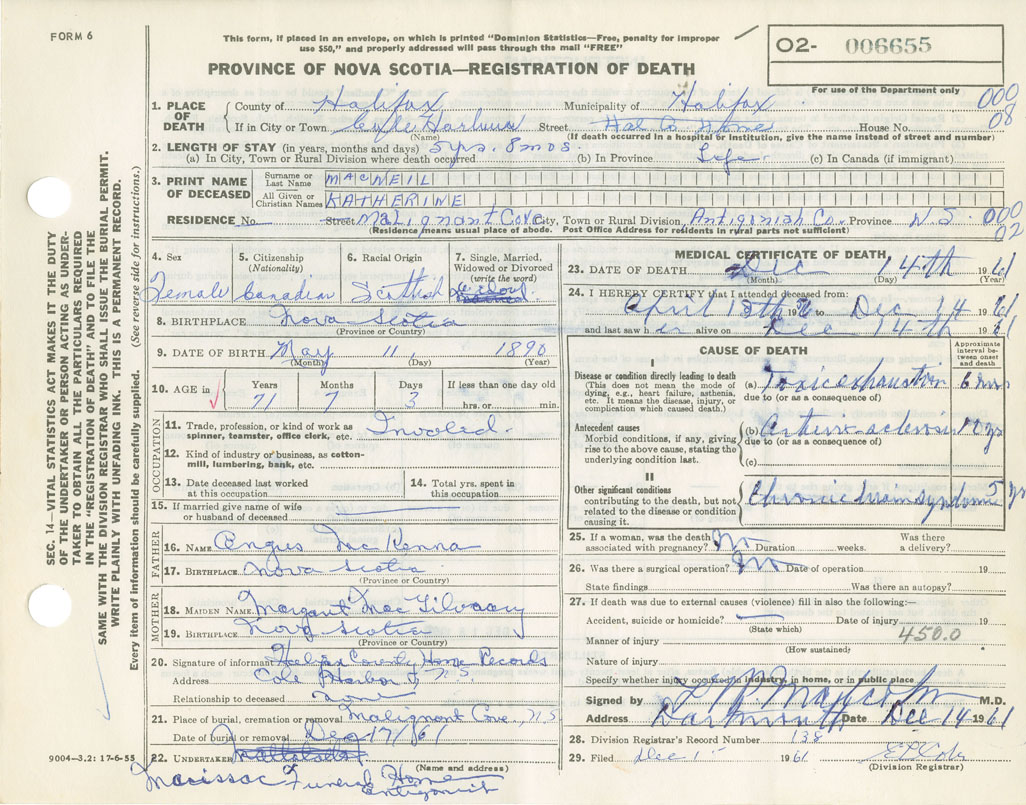 FORM 6
This form, if placed in an envelope, on which is printed "Dominion Statistics—Free, penalty for improper
use $50," and properly addressed will pass through the mail "FREE"
O2- 006655
PROVINCE OF NOVA SCOTIA—REGISTRATION OF DEATH
For use of the Department only
1. PLACE OF DEATH { County of Halifax Municipality of Halifax 000
If in City or Town Cole Harbour Street Hal Co Home House No. 08
(Name) (If death occurred in a hospital or institution, give the name instead of street and number)
2. LENGTH OF STAY (in years, months and days) 5 yrs. 8 mos.
(a) In City, Town or Rural Division where death occurred (b) In Province Life. (c) In Canada (if immigrant)
3. PRINT NAME OF DECEASED { Surname or Last Name MACNEIL
All Given or Christian Names KATHERINE
RESIDENCE No. Street Malignant Cove City, Town or Rural Division Antigonish Co. Province N.S. 000
(Residence means usual place of abode. Post Office Address for residents in rural parts not sufficient) 02
4. Sex
Female
5. Citizenship
(Nationality)
Canadian
6. Racial Origin
Scottish
7. Single, Married,
Widowed or Divorced
(write the word)
8. BIRTHPLACE Nova Scotia
(Province or Country)
9. DATE OF BIRTH May 11, 1890
(Month) (Day) (Year)
10. AGE in Years Months Days If less than one day old
71 7 3 hrs. or min.
OCCUPATION
11. Trade, profession, or kind of work as
spinner, teamster, office clerk, etc.
12. Kind of industry or business, as cotton-
mill, lumbering, bank, etc.
13. Date deceased last worked
at this occupation
14. Total yrs. spent in
this occupation
15. If married give name of wife
or husband of deceased
FATHER
16. NAME Angus McKenna
17. BIRTHPLACE Nova Scotia
(Province or Country)
MOTHER
18. MAIDEN NAME Margaret
19. BIRTHPLACE Nova Scotia
(Province or Country)
20. Signature of informant Halifax County Home Records
Address Cole Harbor N S
Relationship to deceased none
21. Place of burial, cremation or removal Malignant Cove, N.S
Date of burial or removal Dec 17/61
22. UNDERTAKER
(Name and address)
Macissac Funeral Home
9004—3.2: 17-6-55
MEDICAL CERTIFICATE OF DEATH
23. DATE OF DEATH Dec 14th 1961
(Month) (Day) (Year)
24. I HEREBY CERTIFY that I attended deceased from:
April 13th 19 to Dec 14 1961
and last saw her alive on Dec 14th 1961
CAUSE OF DEATH
Approximate
interval be-
tween onset
and death
I
Disease or condition directly leading to death
(This does not mean the mode of
dying, e.g., heart failure, asthenia,
etc. It means the disease, injury, or
complication which caused death.)
(a) Toxic exhaustion 6
due to (or as a consequence of)
Antecedent causes
Morbid conditions, if any, giving
rise to the above cause, stating the
underlying condition last.
(b) 10 yrs
due to (or as a consequence of)
(c)
II
Other significant conditions
contributing to the death, but not
related to the disease or condition
causing it.
Chronic brain syndrome 5 yrs
25. If a woman, was the death Was there
associated with pregnancy? No Duration weeks. a delivery?
26. Was there a surgical operation? No Date of operation 19
State findings Was there an autopsy?
27. If death was due to external causes (violence) fill in also the following:—
Accident, suicide or homicide? Date of injury 19
(State which)
Manner of injury 450.0
(How sustained)
Nature of injury
Specify whether injury occurred in industry, in home, or in public place
Signed by M.D.
Address Dartmouth Date Dec 14 1961
28. Division Registrar's Record Number 138
29. Filed Dec 1961
(Division Registrar)
SEC. 14—VITAL STATISTICS ACT MAKES IT THE DUTY
OF THE UNDERTAKER OR PERSON ACTING AS UNDER-
TAKER TO OBTAIN ALL THE PARTICULARS REQUIRED
IN THE "REGISTRATION OF DEATH" AND TO FILE THE
SAME WITH THE DIVISION REGISTRAR WHO SHALL ISSUE THE BURIAL PERMIT.
WRITE PLAINLY WITH UNFADING INK. THIS IS A PERMANENT RECORD.
Every item of information should be carefully supplied. (See reverse side for instructions.)